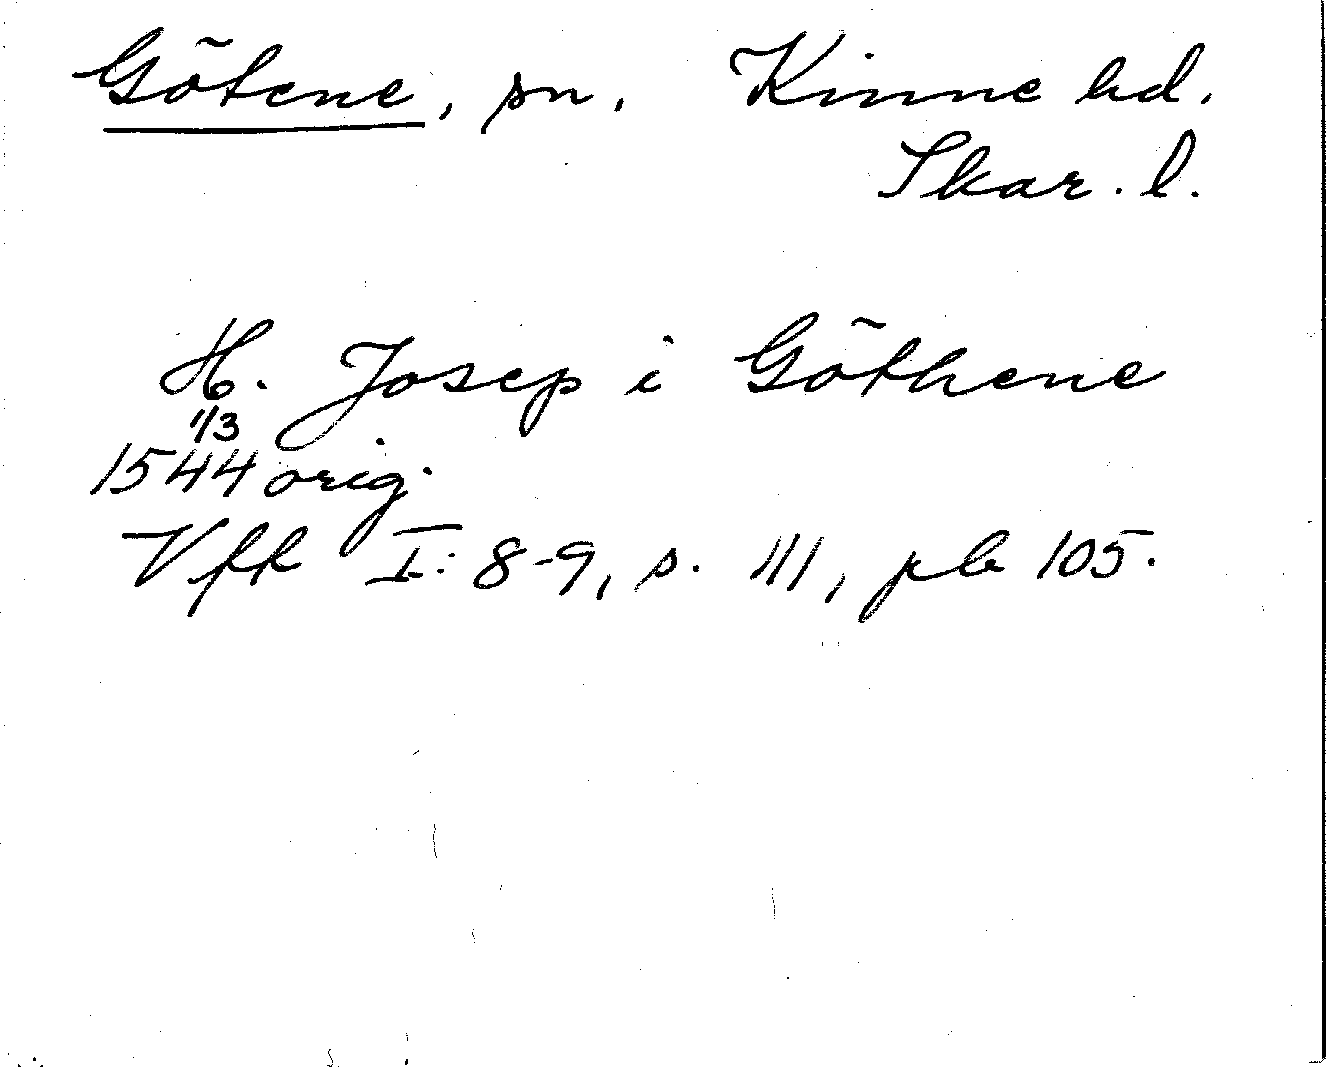 Götene, sn. Kinne hd.
Skar. l.
H. Josep i Göthene
1/3
1544 orig.
Vfk I: 8-9, s. 111, pb 105.